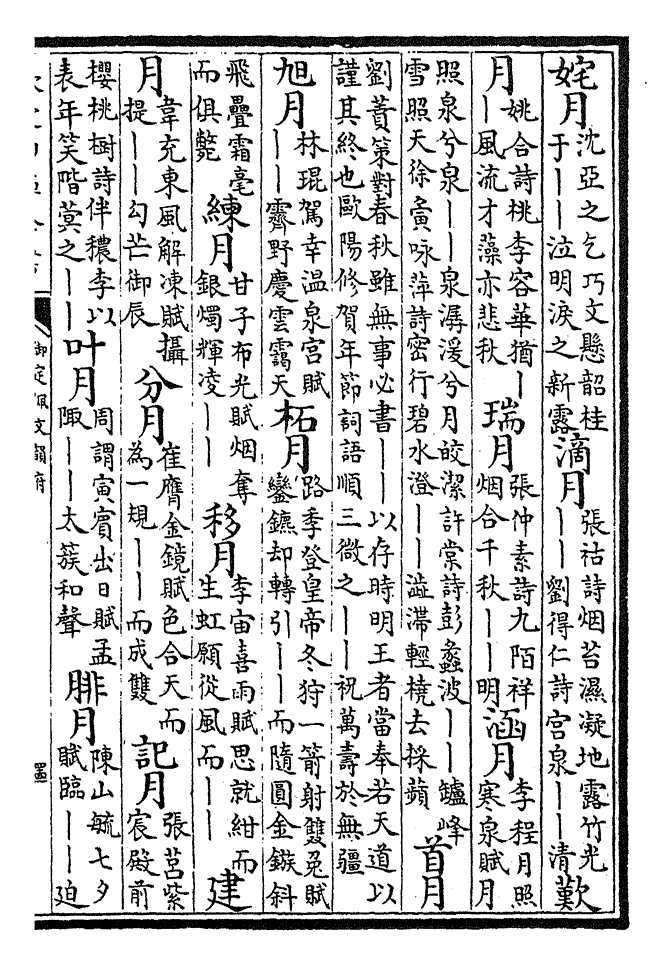 姹月沈亞之乞巧文懸韶桂于丨丨泣明淚之新露滴月張祜詩烟苔濕凝地露竹光丨丨劉得仁詩宫泉丨丨清歎
月姚合詩桃李容華猶丨丨風流才藻亦悲秋瑞月張仲素詩九陌祥烟合千秋丨丨明涵月李程月照寒泉賦月
照泉兮泉丨丨泉潺湲兮月皎潔許棠詩彭蠡波丨丨鑪峰雪照天徐夤咏萍詩密行碧水澄丨丨澁滯輕橈去採蘋首月
劉蕡策對春秋雖無事必書丨丨以存時明王者當奉若天道以謹其終也歐陽修賀年節詞語順三微之丨丨祝萬壽於無疆
旭月林琨駕幸温泉宮賦丨丨霽野慶雲靄天柘月路季登皇帝冬狩一箭射雙兔賦鑾鑣却轉引丨丨而隨圓金鏃斜
飛疊霜毫而俱斃練月甘子布光賦烟奪銀燭輝凌丨丨移月李宙喜雨賦思就紺而生虹願從風而丨丨建
月韋充東風解凍賦攝提丨丨勾芒御辰分月崔膺金鏡賦色合天而為一規丨丨而成雙記月張莒紫宸殿前
櫻桃樹詩伴穠李以表年笑階蓂之丨丨叶月周謂寅賓出日賦孟陬丨丨太簇和聲腓月陳山毓七夕賦臨丨丨迫
御定佩文韻府